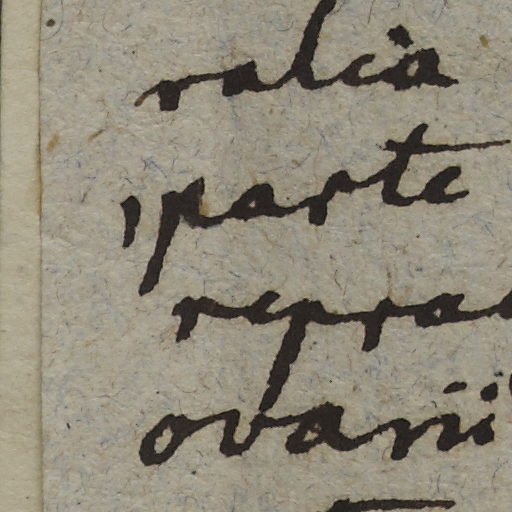 ralia
parte
repra
ovarii